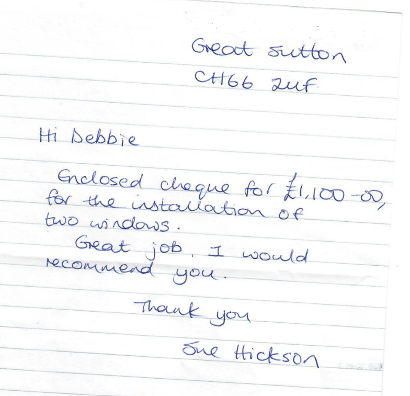 Great Sutton
CH66 2UF
Hi Debbie
Enclosed cheque for £1,100-00,
for the installation of
two windows.
Great job, I would
recommend you.
Thank you
Sue Hickson